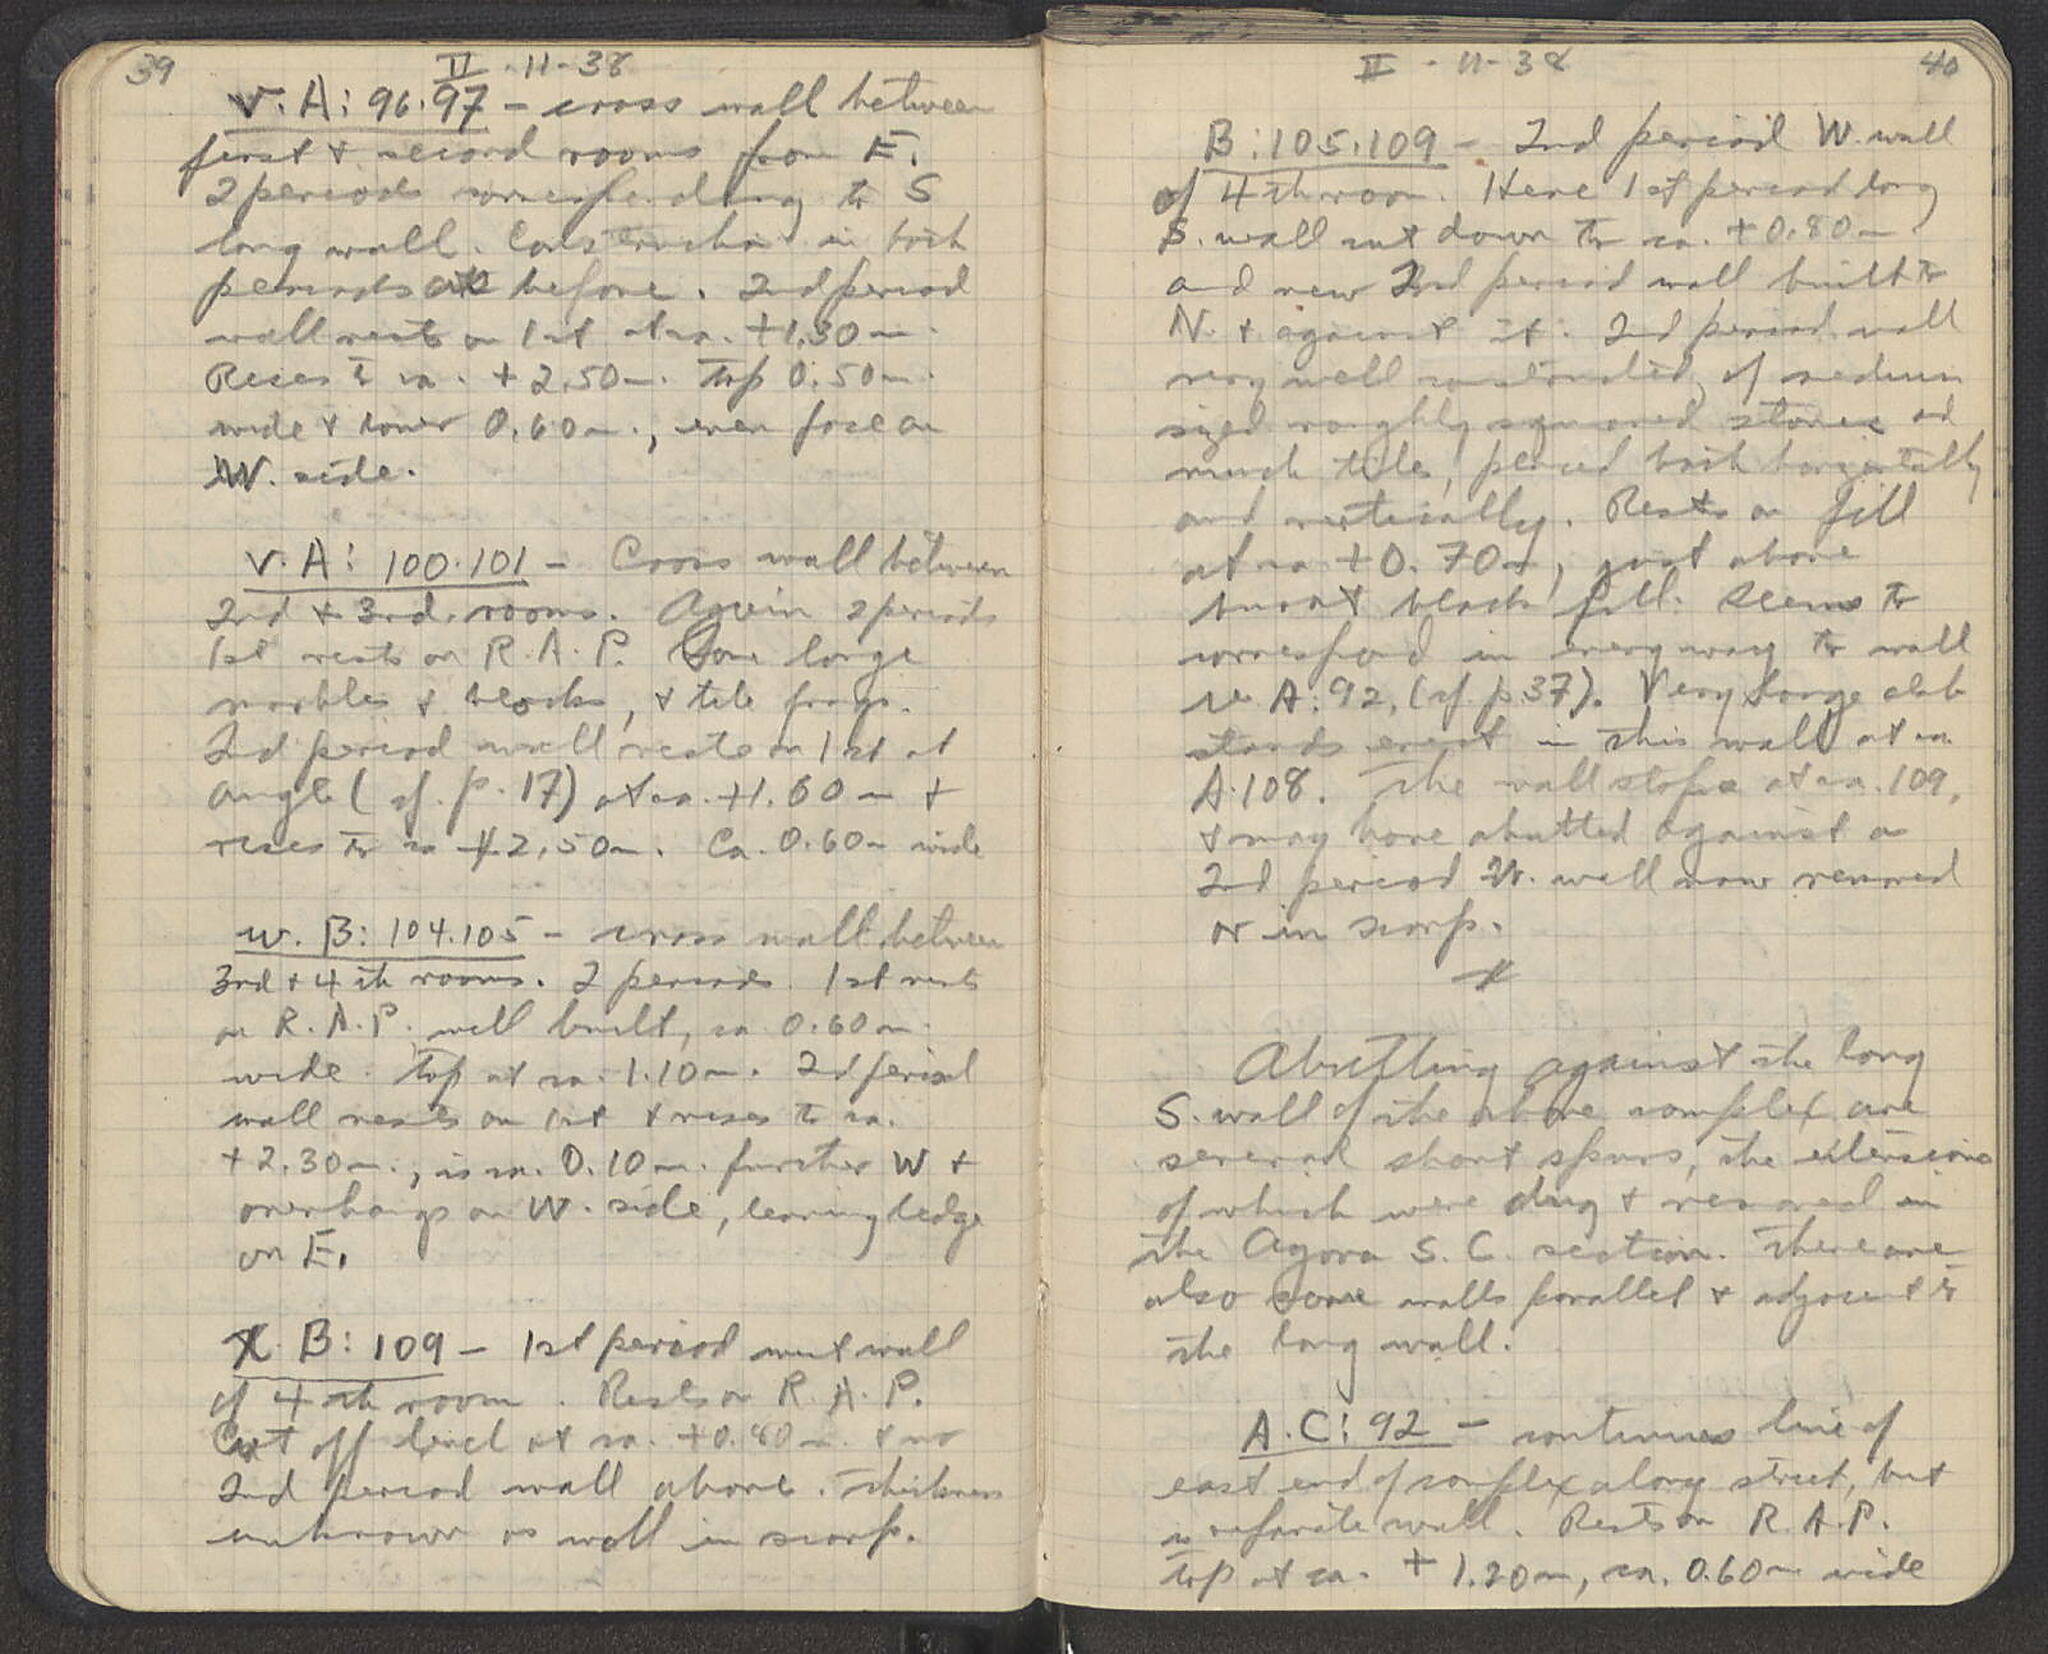 39
II-11-38
V.A: 96.97 - cross wall between
first + second rooms from E.
2 periods corresponding to S
long wall. Construction in both
periods as before. 2nd period
wall rests on 1st at ca. +1.30 m.
Rises to ca. +2.50 m. Top 0.50 m.
wide + lower 0.60 m., even face on
W. side.
V.A: 100.101 - Cross wall between
2nd + 3rd rooms. Again 2 periods
1st rests on R.A.P. Some large
marbles + blocks, + tile frags.
2nd period wall rests on 1st at
angle (cf. p. 17) at ca. +1.60 m +
rises to ca +2.50 m. Ca. 0.60 m wide
W.B: 104.105 - cross wall between
3rd + 4th rooms. 2 periods 1st rests
on R.A.P. well built, ca. 0.60 m.
wide. Top at ca. 1.10 m. 2d period
wall rests on 1st + rises to ca.
+2.30 m., is ca. 0.10 m. further W +
overhangs on W. side, leaving ledge
on E.
X.B: 109 - 1st period west wall
of 4th room. Rests on R.A.P.
Cut off level at ca. +0.80 m. + no
2nd period wall above. Thickness
unknown as wall in scarp.
II-11-38
40
B: 105.109 - 2nd period W. wall
of 4th room. Here 1st period long
S. wall cut down to ca. +0.80 m.
and new 2nd period wall built to
N. + against it. 2nd period wall
very well constructed, of medium
sized roughly squared stones and
much tile, placed both horizontally
and vertically. Rests on fill
at ca +0.70 m, just above
burnt black fill. Seems to
correspond in every way to wall
A: 92, (cf. p. 37). Very large slab
stands erect in this wall at ca.
A.108. The wall stops at ca. 109,
+ may have abutted against a
2nd period W. wall now removed
or in scarp.
Abutting against the long
S. wall of the above complex are
several short spurs, the extensions
of which were dug + removed in
the Agora S.C. section. There are
also some walls parallel + adjacent to
the long wall.
A.C: 92 - continues line of
east end of complex along street, but
is separate wall. Rests on R.A.P.
top at ca. +1.20 m, ca. 0.60 m wide